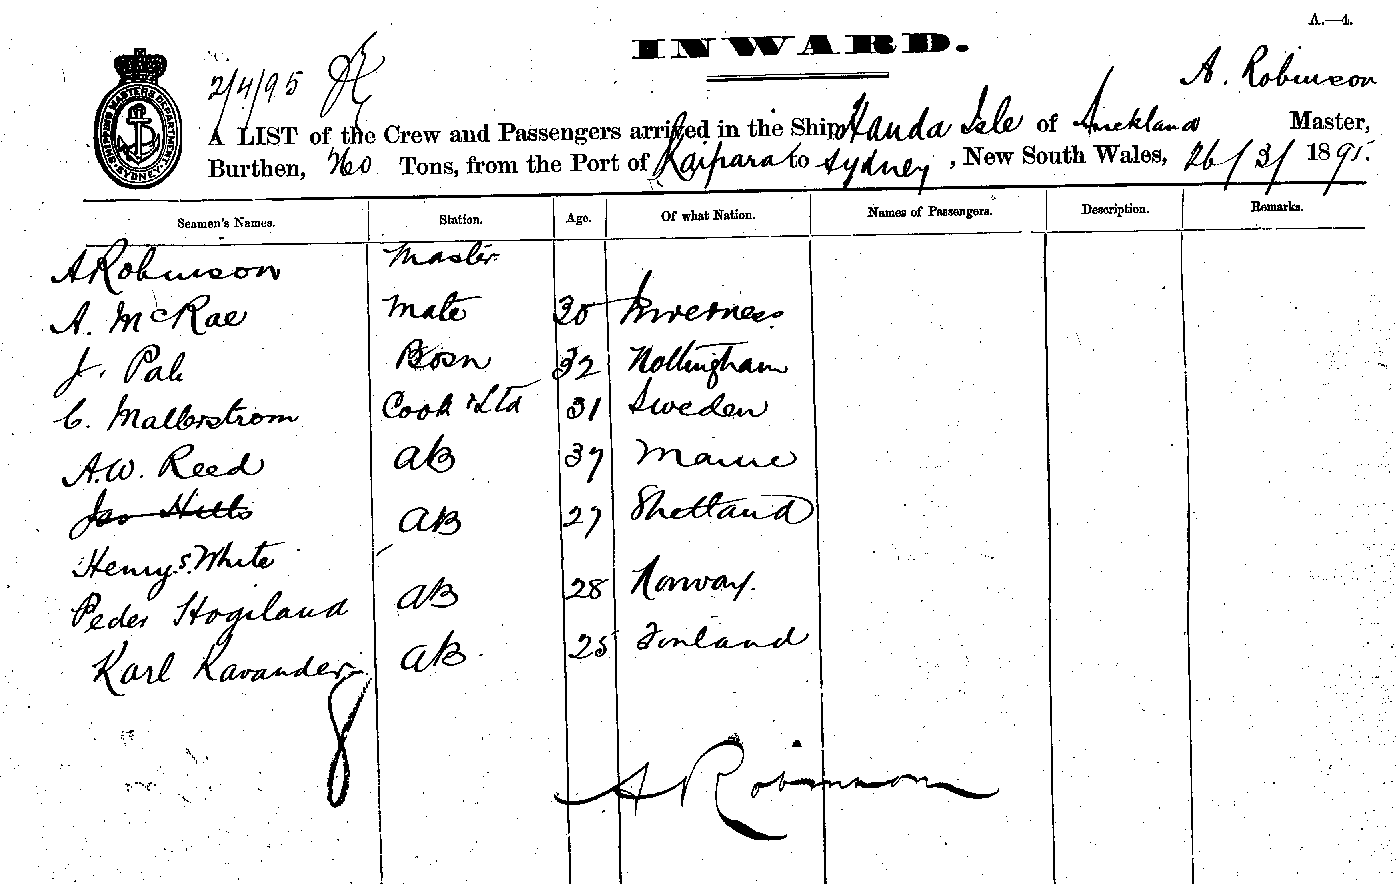 A.—4.
INWARD.
2/4/95
A. Robinson
A LIST of the Crew and Passengers arrived in the Ship Handa Isle of Auckland Master,
Burthen, Tons, from the Port of Kaipara to Sydney, New South Wales, 26/3/1895.
SHIPPING MASTERS DEPARTMENT SYDNEY
Seamen's Names. Station. Age. Of what Nation. Names of Passengers. Description. Remarks.
A Robinson Master
A. McRae Mate 30 Inverness
J. Pale Bosn 32 Nottingham
C. Mallerstrom Cook & Std 31 Sweden
A.W. Reed AB 37 Maine
Jas Hills AB 27 Shetland
Henry S. White
Peder Hogiland AB 28 Norway.
Karl Kavander AB 25 Finland
8
A Robinson